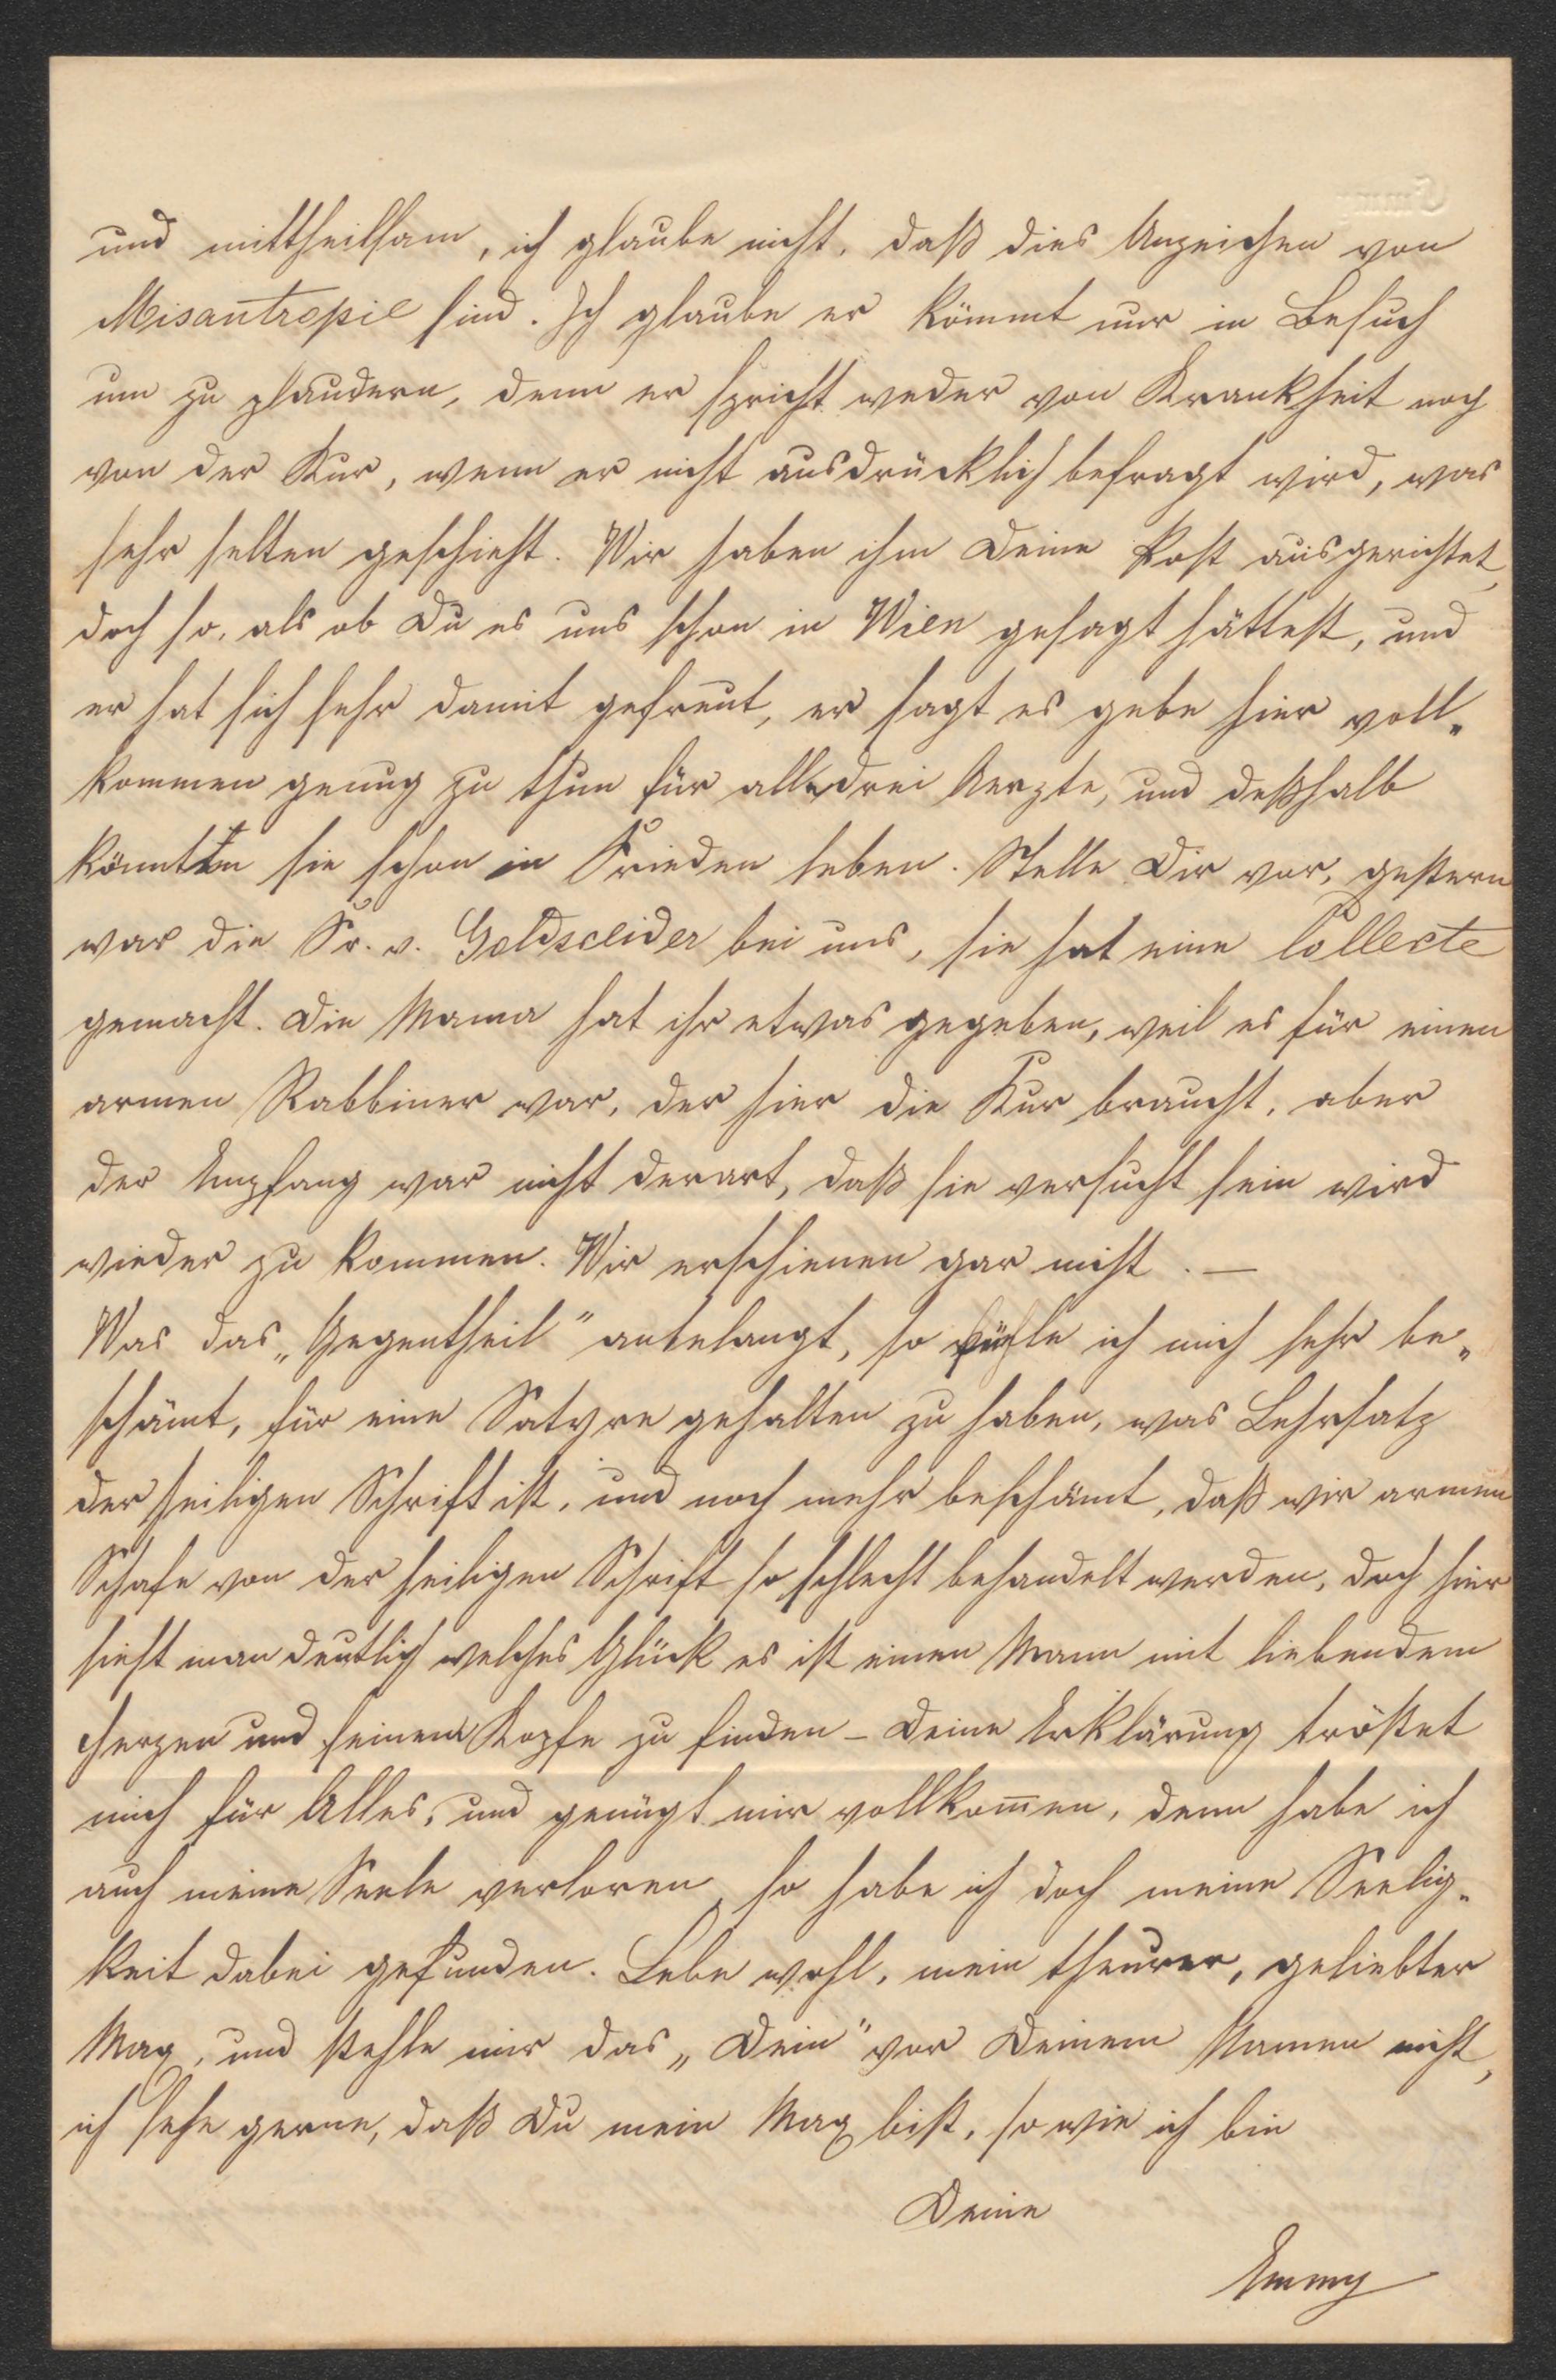 und mittheilsam, ich glaube nicht, daß dies Anzeichen von
Misantropie sind. Ich glaube er kömmt nur in Besuch
um zu plaudern, denn er spricht weder von Krankheit noch
von der Kur, wenn er nicht ausdrücklich befragt wird, was
sehr selten geschieht. Wir haben ihm Deine Post ausgerichtet,
doch so, als ob Du es uns schon in Wien gesagt hättest, und
er hat sich sehr damit gefreut, er sagt es gebe hier voll„
kommen genug zu thun für alle drei Aerzte, und deßhalb
könnten sie schon in Frieden leben. Stelle Dir vor, gestern
war die Fr. v. Goldsceider bei uns, sie hat eine Collecte
gemacht. Die Mama hat ihr etwas gegeben, weil es für einen
armen Rabbiner war, der hier die Kur braucht, aber
der Empfang war nicht derart, daß sie versucht sein wird
wieder zu kommen. Wir erschienen gar nicht. —
Was das „Gegentheil" anbelangt, so fühle ich mich sehr be„
schämt, für eine Satyre gehalten zu haben, was Lehrsatz
der heiligen Schrift ist, und noch mehr beschämt, daß wir armen
Schafe von der heiligen Schrift so schlecht behandelt werden, doch hier
sieht man deutlich welches Glück es ist einen Mann mit liebendem
Herzen und feinem Kopfe zu finden – Deine Erklärung tröstet
mich für Alles, und genügt mir vollkom̅en, denn habe ich
auch meine Seele verloren, so habe ich doch meine Seelig„
keit dabei gefunden. Lebe wohl, mein theurer, geliebter
Max, und stehle mir das „Dein" vor Deinem Namen nicht,
ich sehe gerne, daß Du mein Max bist, so wie ich bin
Deine
Emmy